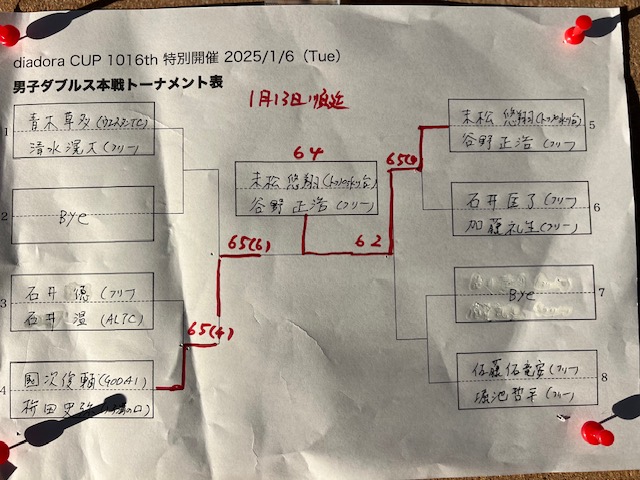 diadora CUP 1016th 特別開催 2025/1/6（Tue）
男子ダブルス本戦トーナメント表
1月13日順延
1
青木 卓多
清水 滉大(フリー)
2
Bye
3
石井 徳 (フリー)
石井 温 (ALTC)
4
國次俊輔(GODAI)
桝田史弥
65(4)
65(6)
64
末松 悠翔
谷野 正浩 (フリー)
62
65
末松 悠翔
谷野 正浩 (フリー)
5
石井 匡了 (フリー)
加藤 礼生(フリー)
6
Bye
7
佐藤佑竜 (フリー)
堀池哲平(フリー)
8